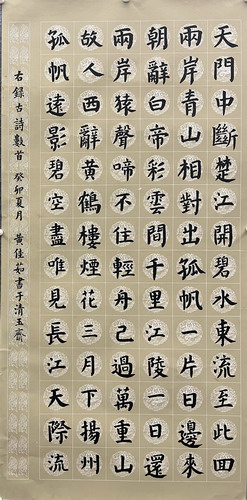 天門中斷楚江開碧水東流至此回
兩岸青山相對出孤帆一片日邊來
朝辭白帝彩雲間千里江陵一日還
兩岸猿聲啼不住輕舟已過萬重山
故人西辭黃鶴樓煙花三月下揚州
孤帆遠影碧空盡唯見長江天際流
右錄古詩數首 癸卯夏月 黃佳茹書于清玉齋